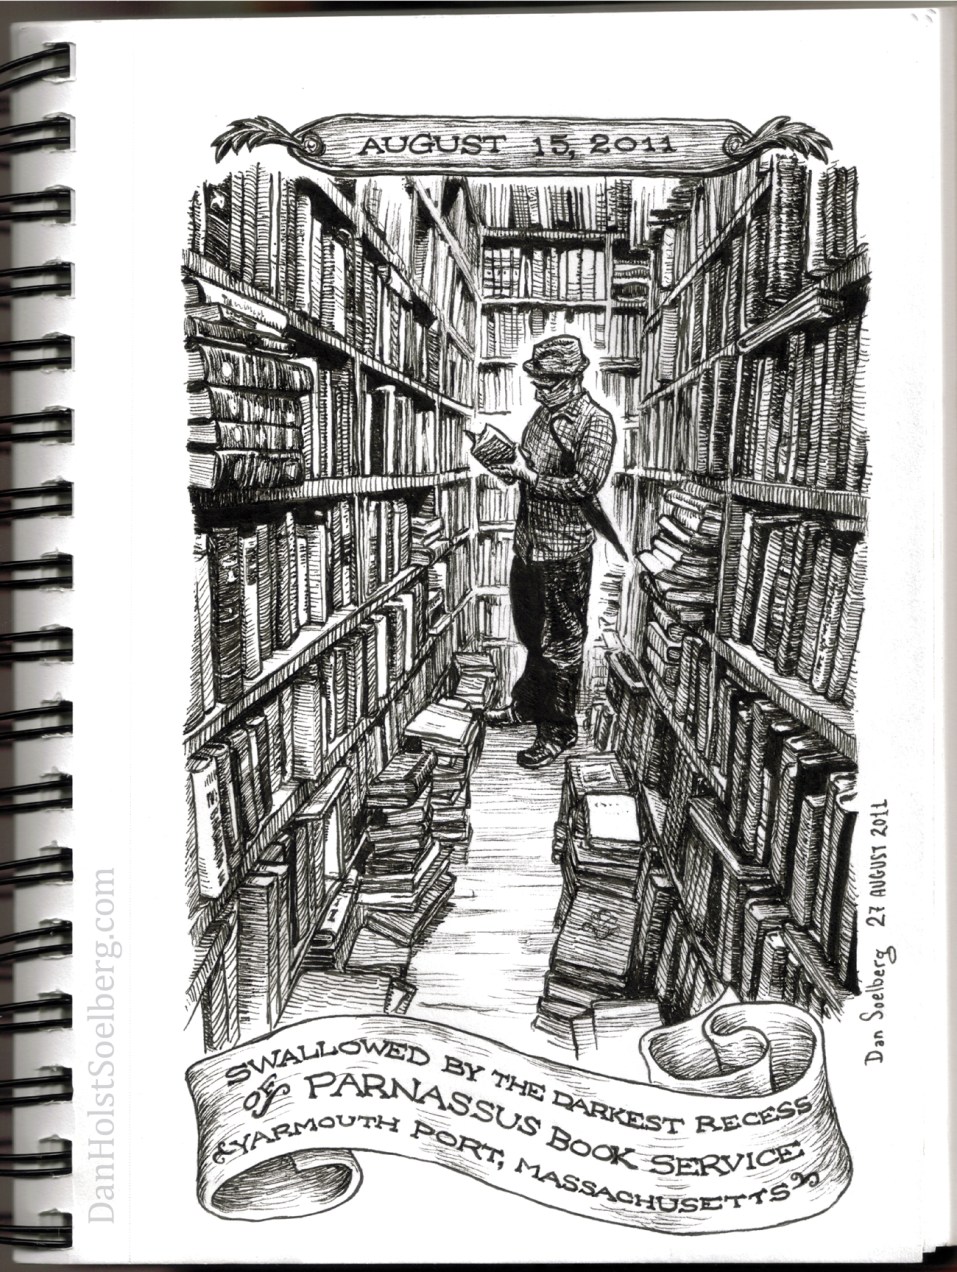 AUGUST 15, 2011
SWALLOWED BY THE DARKEST RECESS
of PARNASSUS BOOK SERVICE
YARMOUTH PORT, MASSACHUSETTS
Dan Soelberg 27 AUGUST 2011
DanHolstSoelberg.com